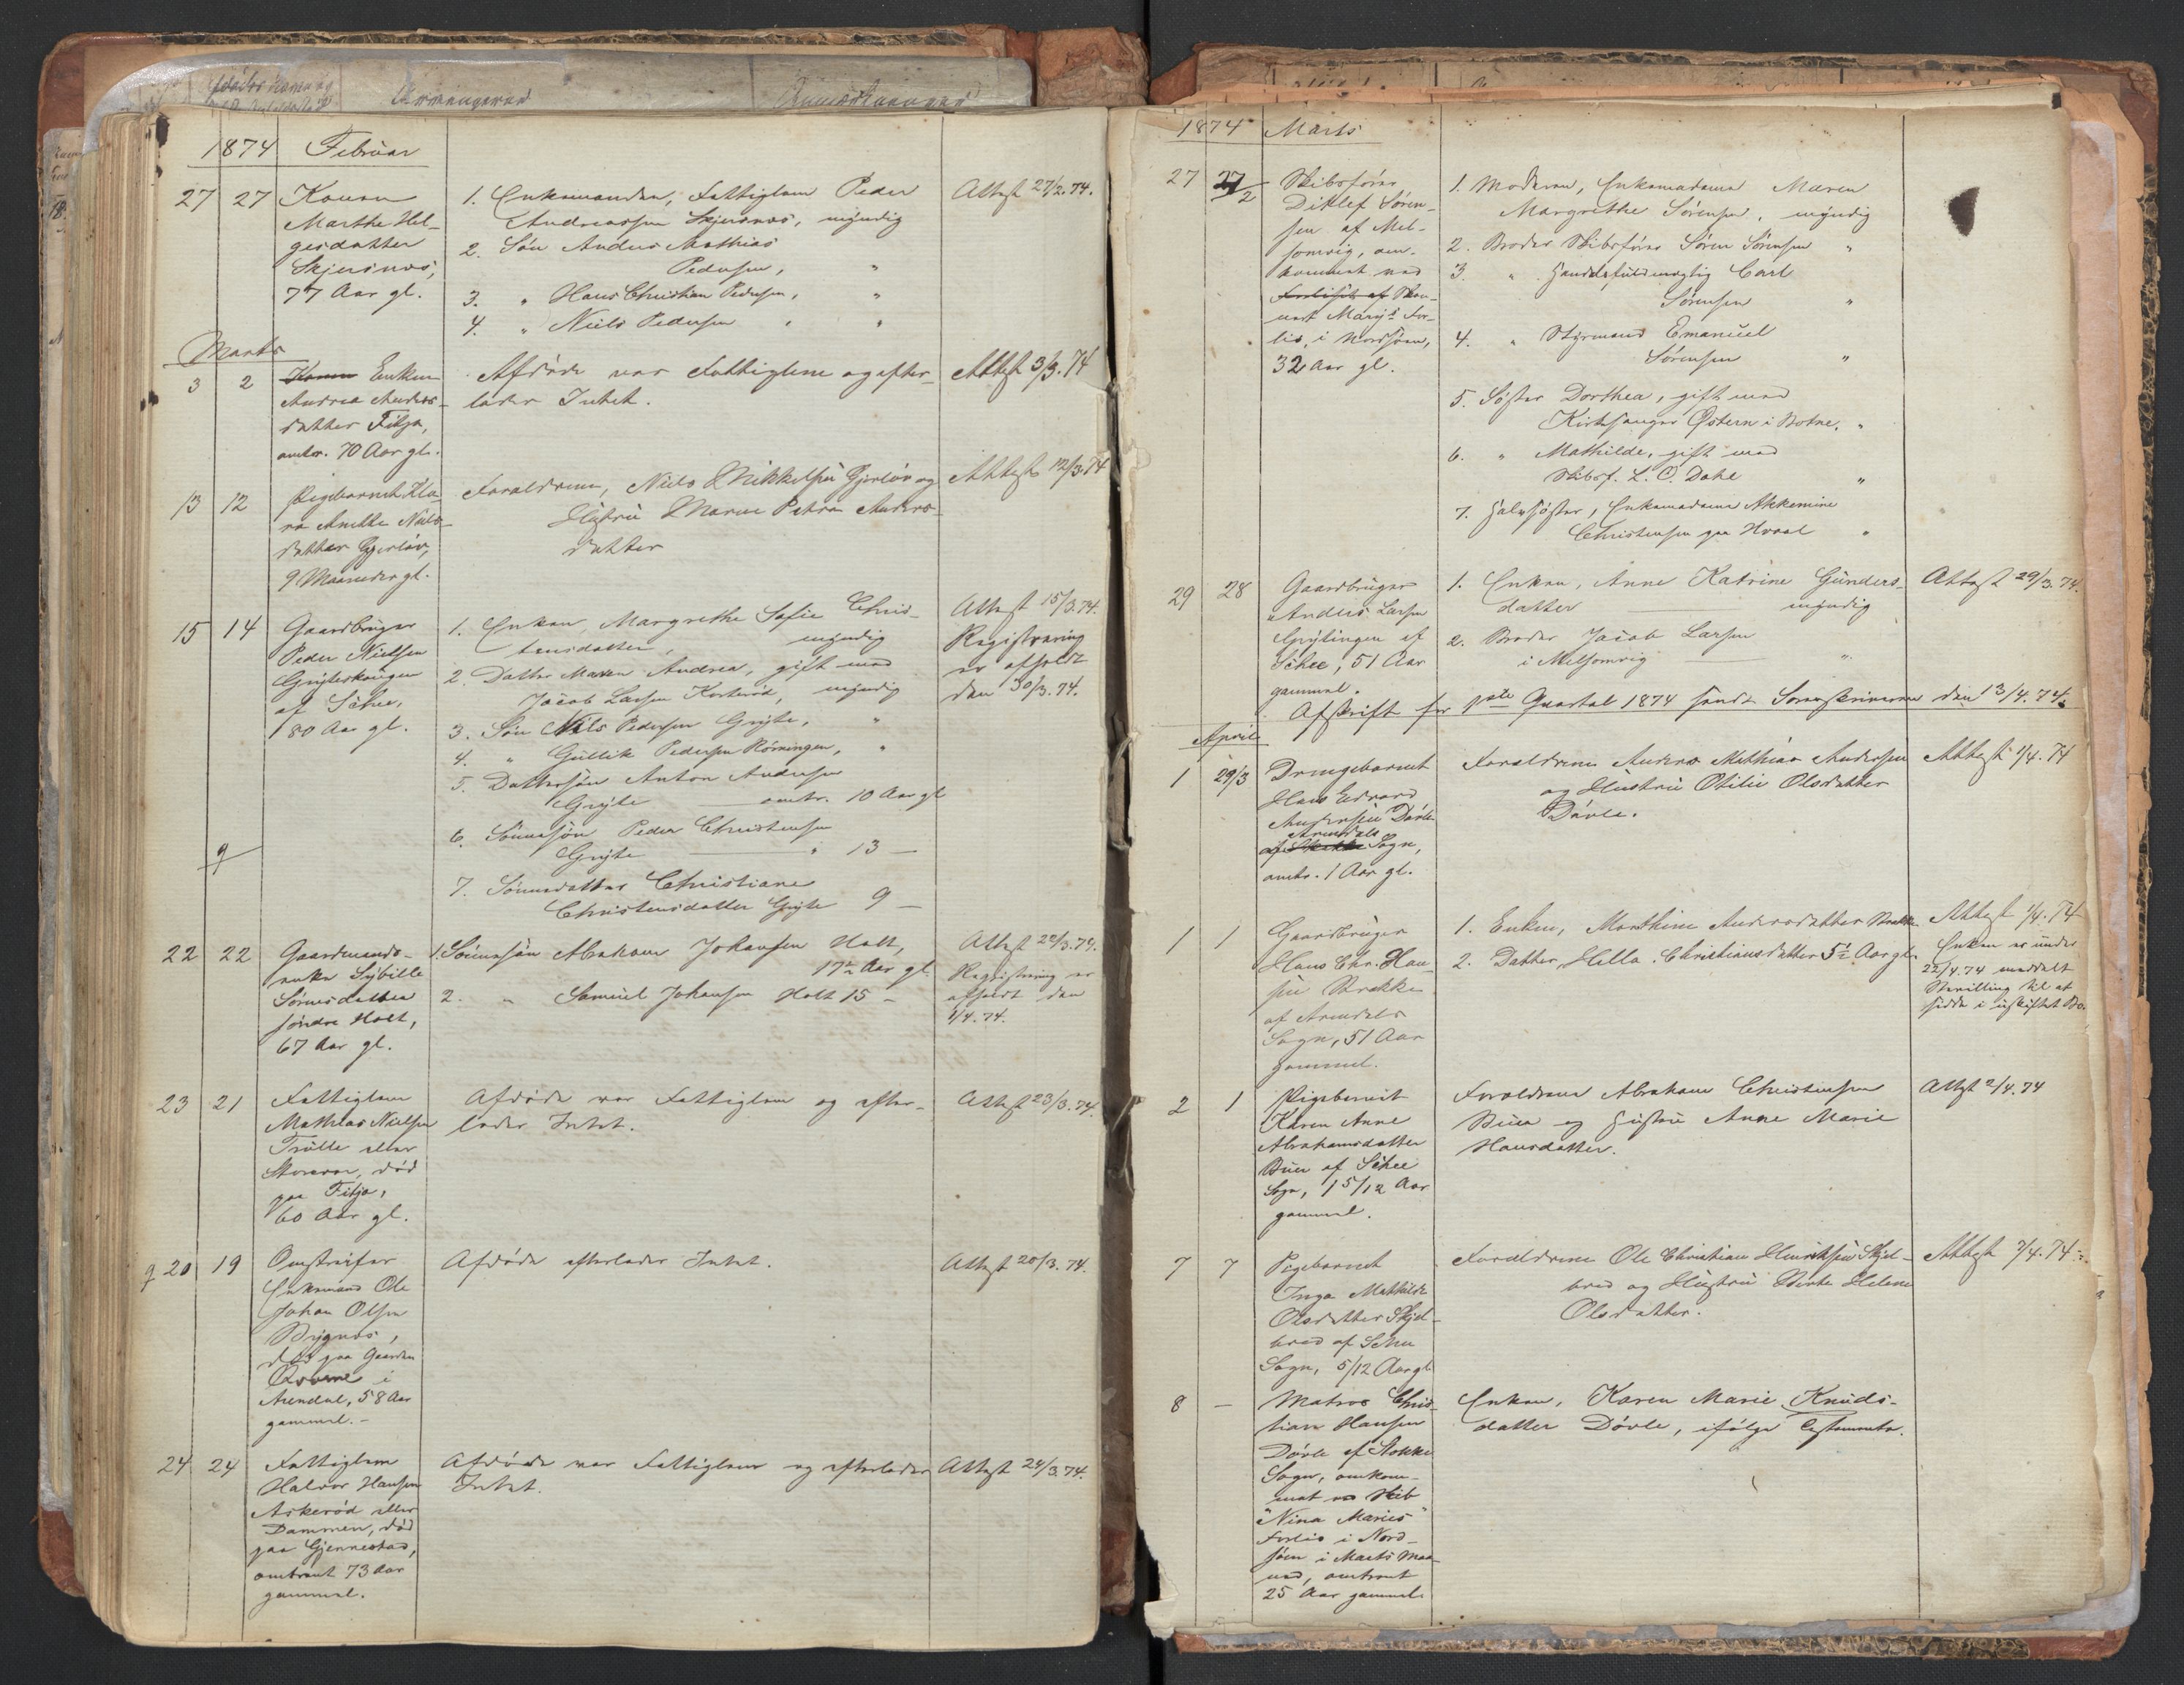 1874 Februar
27 27 Konen
Marthe Hel-
gesdatter
Skjersnæs,
77 Aar gl.
1. Enkemanden, Fattiglem Peder
Andreassen Skjersnæs, myndig
2. Søn Anders Mathias
Pedersen, "
3. " Hans Christian Pedersen, "
4. " Niels Pedersen " "
Attest 27/2.74.
Marts
3 2 Konen Enken
Andrea Anders-
datter Fitja,
omtr. 70 Aar gl.
Afdøde var Fattiglem og efter-
lader Intet.
Attest 3/3.74
13 12 Pigebarnet Kla-
ra Anette Niels-
datter Gjerløv,
9 Maaneder gl.
Forældrene, Niels Mikkelsen Gjerløv og
Hustru Maren Petra Anders-
datter
Attest 12/3.74
15 14 Gaardbruger
Peder Nielsen
Gryteskougen
af Sehee,
80 Aar gl.
1. Enken, Margrethe Sofie Chris-
tensdatter, myndig
2. Datter Maren Andrea, gift med
Jacob Larsen Korterød, myndig
3. Søn Niels Pedersen Gryte, "
4. " Gullik Pedersen Rømingen, "
5. Dattersøn Anton Andersen
Gryte omtr. 10 Aar gl
6. Sønnesøn Peder Christensen
Gryte " 13 —
7. Sønnedatter Christiane
Christensdatter Gryte 9 —
Attest 15/3.74.
Registrering
er afholdt
den 30/3.74.
9
22 22 Gaardmands-
enke Sybille
Sørensdatter
søndre Holt,
67 Aar gl.
1. Sønnesøn Abraham Johansen Holt,
17½ Aar gl.
2. " Samuel Johansen Holt 15 —
Attest 22/3.74.
Registrering er
afholdt den
1/4.74.
23 21 Fattiglem
Mathias Nielsen
Trulle eller
Storevar, død
paa Fitja,
60 Aar gl.
Afdøde var Fattiglem og efter-
lader Intet.
Attest 23/3.74.
9 20 19 Omstreifer
Enkemand Ole
Johan Olsen
Brygnæs,
død paa Gaarden
Qvarne i
Arendal, 58 Aar
gammel.-
Afdøde efterlader Intet.
Attest 20/3.74.
24 24 Fattiglem
Halvor Hansen
Askerød eller
Dammen, død
paa Gjennestad,
omtrent 73 Aar
gammel.
Afdøde var Fattiglem og efterlader
Intet.
Attest 24/3.74.
1874 Marts
27 27/2 Skibsfører
Ditlef Søren-
sen af Mel-
somvig, om-
kommet ved
Forliset af Skon-
nert Mary's For-
lis, i Nordsøen,
32 Aar gl.
1. Moderen, Enkemadame Maren
Margrethe Sørensen, myndig
2. Broder Skibsfører Søren Sørensen "
3. " Handelsfuldmægtig Carl
Sørensen "
4. " Styrmand Emanuel
Sørensen "
5. Søster Dorthea, gift med
Kirkesanger Østern i Botne. "
6. " Mathilde, gift med
Skibsf. L. C. Dahl "
7. Halvsøster, Enkemadame Akkemine
Christensen paa Hvaal "
29 28 Gaardbruger
Anders Larsen
Grytingen af
Sehee, 51 Aar
gammel.
1. Enken, Anne Katrine Gunders-
datter — myndig
2. Broder Jacob Larsen
i Melsomvig — "
Attest 29/3.74.
Afskrift for 1ste Quartal 1874 sendt Sorenskriveren den 13/4.74.
April
1 29/3 Drengebarnet
Hans Edvard
Andersen Døvle
Arendals
af Stokke Sogn,
omtr. 1 Aar gl.
Forældrene Anders Mathias Andersen
og Hustru Otilie Olsdatter
Døvle.
Attest 1/4.74
1 1 Gaardbruger
Hans Chr. Han-
sen Brekke
af Arendals
Sogn, 51 Aar
gammel.
1. Enken, Marthine Andersdatter Brekke
2. Datter, Hella Christiansdatter 5½ Aar gl.
Attest 1/4.74
Enken er under
22/4.74 meddelt
Bevilling til at
sidde i uskiftet Bo.
2 1 Pigebarnet
Karen Anne
Abrahamsdatter
Buer af Sehee
Sogn, 1 5/12 Aar
gammel.
Forældrene Abraham Christensen
Buer og Hustru Anne Marie
Hansdatter.
Attest 2/4.74
7 7 Pigebarnet
Inga Mathilde
Olsdatter Skjel-
bred af Sehee
Sogn, 5/12 Aar gl
Forældrene Ole Christian Henriksen Skjel-
bred og Hustru Berte Helene
Olsdatter.
Attest 7/4.74.
8 — Matros Chris-
tian Hansen
Døvle af Stokke
Sogn, omkom-
met ved Skib
"Nina Maries"
Forlis i Nord-
søen i Marts Maa-
ned, omtrent
25 Aar gammel.
Enken, Karen Marie Knuds-
datter Døvle, ifølge Testamente.